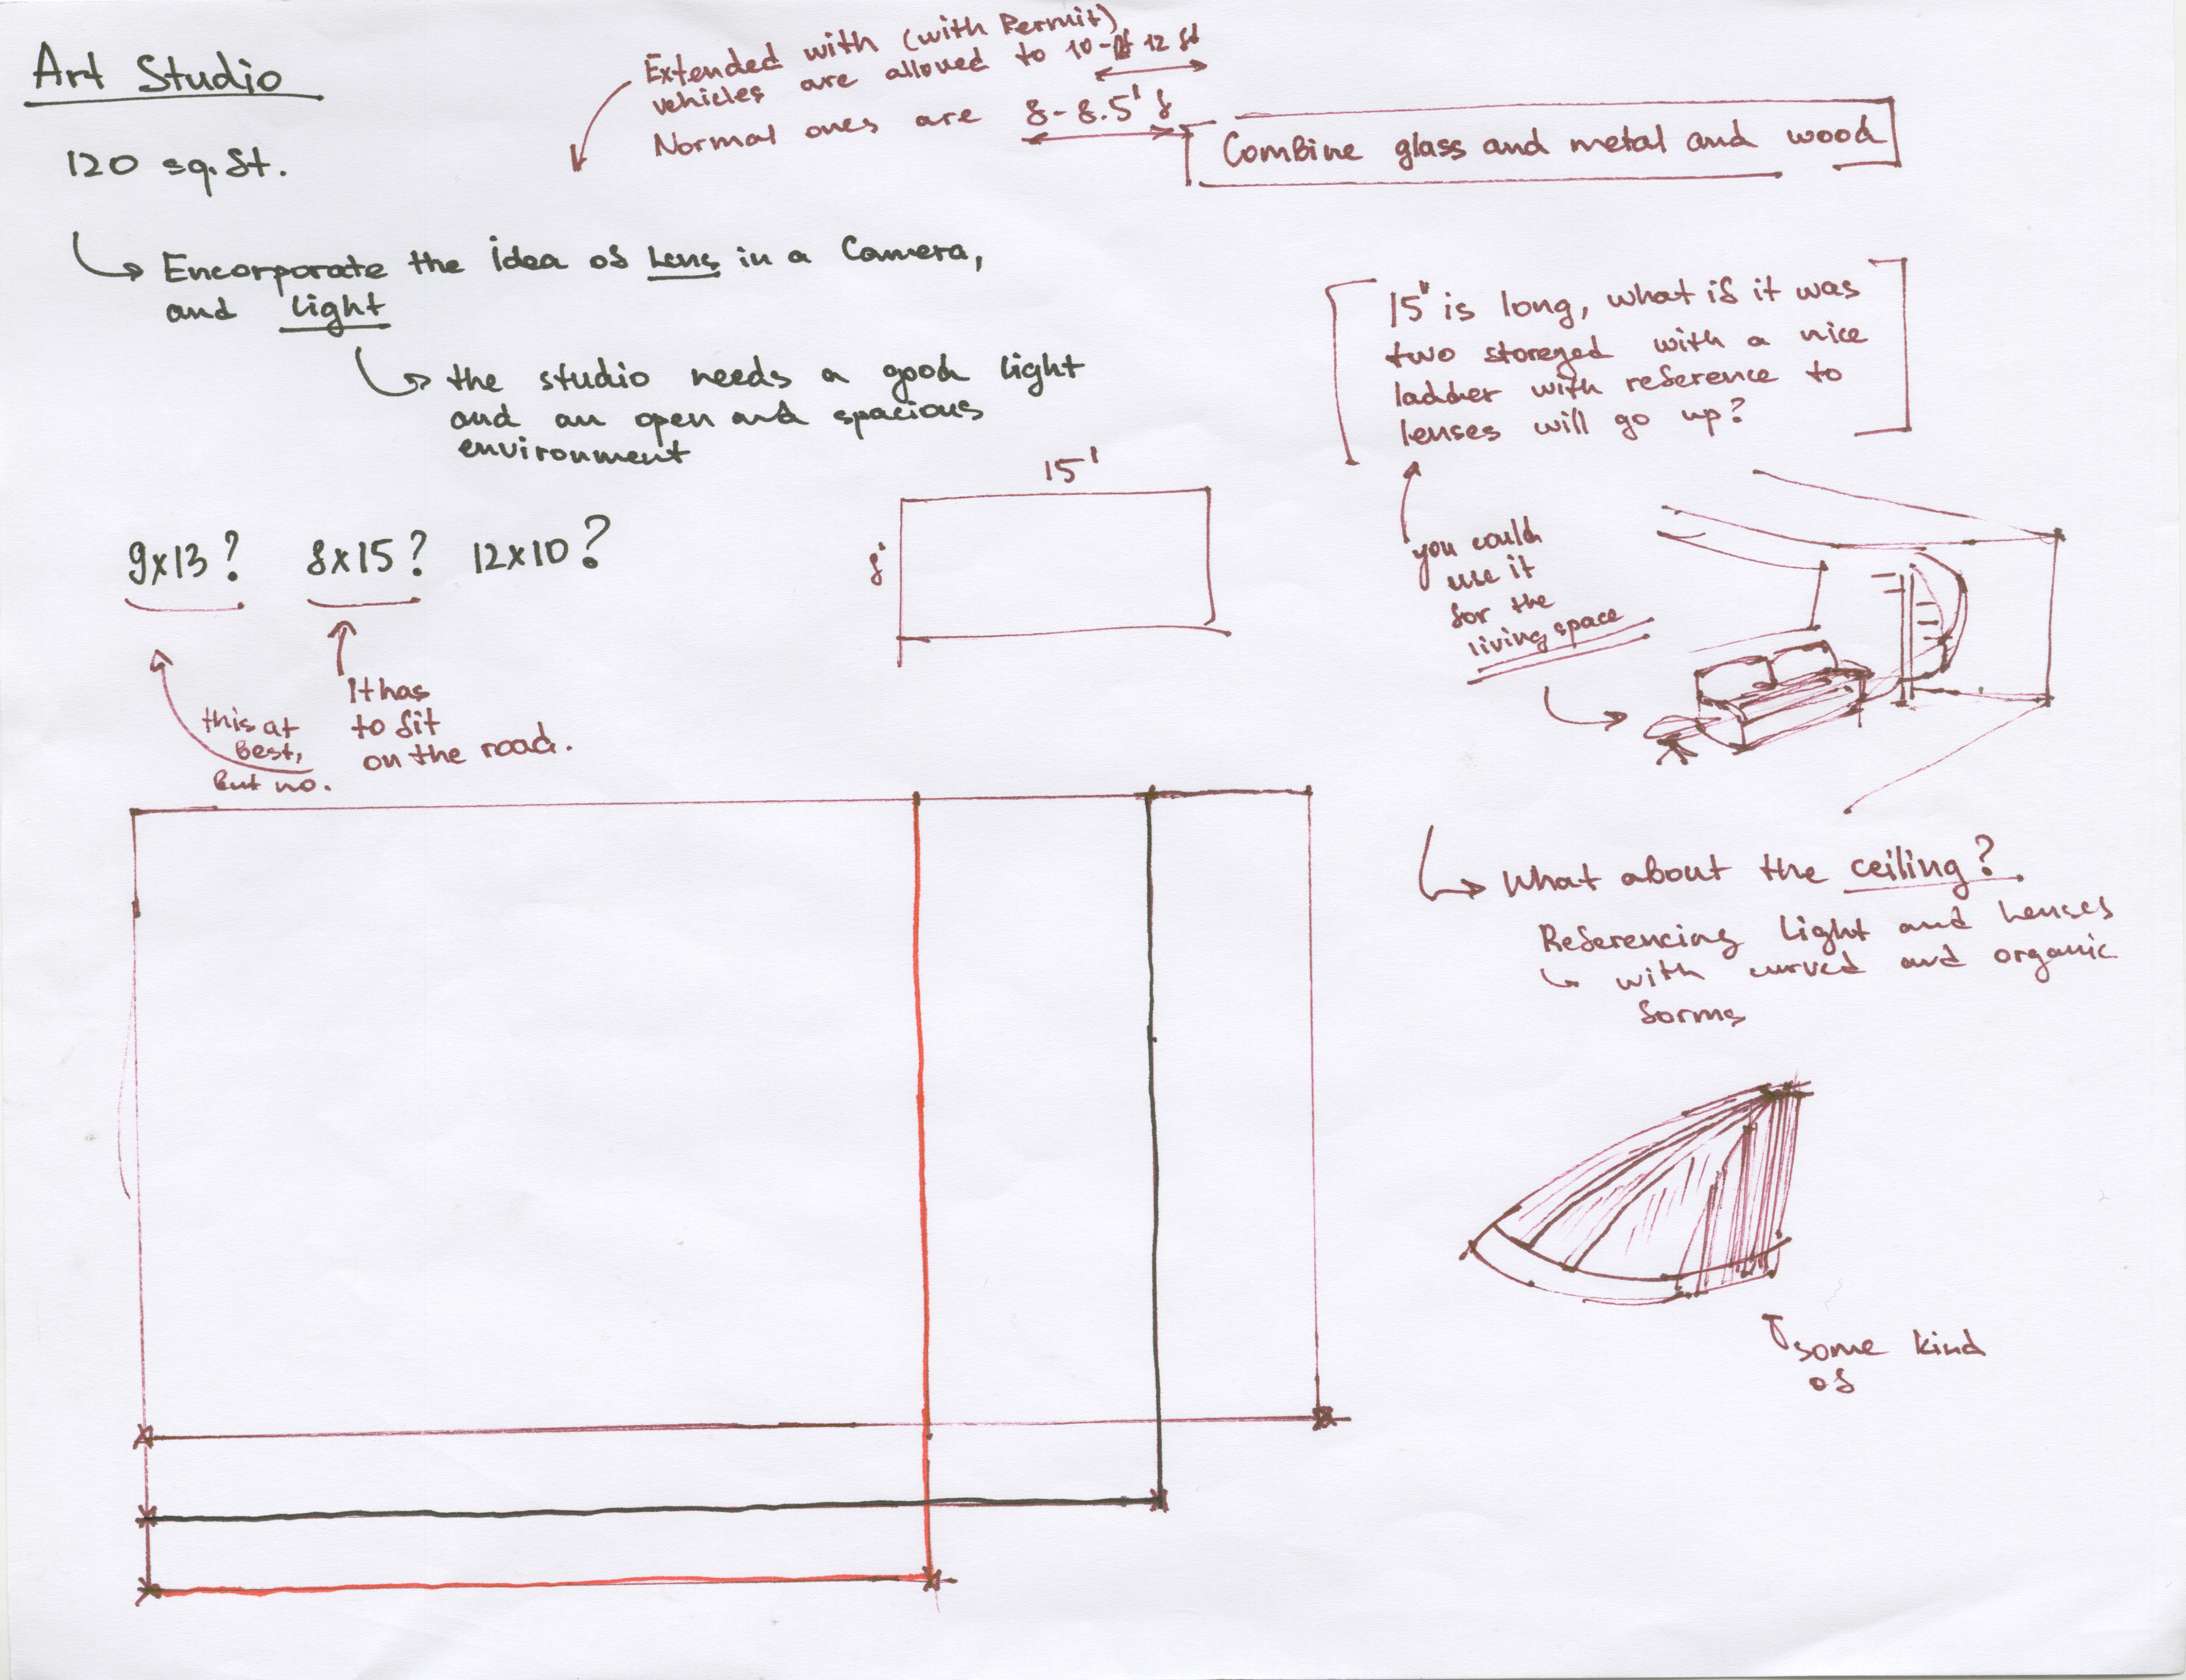 Art Studio
120 sq.ft.
Encorporate the idea of Lens in a Camera,
and light
the studio needs a good light
and an open and spacious
environment
9x13? 8x15? 12x10?
this at
best,
But no.
It has
to fit
on the road.
Extended with (with Permit)
vehicles are allowed to 10- 12 ft
Normal ones are 8-8.5'
Combine glass and metal and wood
15'
8'
15" is long, what if it was
two storeyed with a nice
ladder with reference to
lenses will go up?
you could
use it
for the
living space
What about the ceiling?
Referencing Light and Lenses
with curved and organic
forms
some kind
of